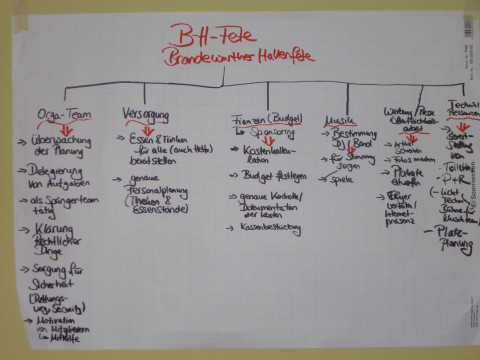 B-H-Fete
Brandewurther Hallenfete
Orga-Team
→ Überwachung
der Planung
→ Delegierung
von Aufgaben
→ als Springerteam
tätig
→ Klärung
rechtlicher
Dinge
→ Sorgung für
Sicherheit
(Rettungs-
weg, Security)
→ Motivation
von Mitgliedern
↳ Mithilfe
Versorgung
→ Essen & Trinken
für alle (auch Helfer)
bereitstellen
→ genaue
Personalplanung
(Theken &
Essenstände)
Finanzen (Budget)
↳ Sponsoring
→ Kostenkalku-
lation
→ Budget festlegen
→ genaue
Dokumentation
der Kosten
→ Kassenbestückung
Musik
→ Bestimmung
DJ / Band
→ für Stimmung
sorgen
→ Spiele
Werbung / Presse
Öffentlichkeits-
arbeit
→ Artikel
schreiben
→ Fotos machen
→ Plakate
entwerfen
→ Flyer
verteilen /
Internet-
präsenz
Technik
Ressourcen
→ Bereit-
stellung von
- Toiletten
- Licht,
Technik,
Bühne
- Platz-
planung